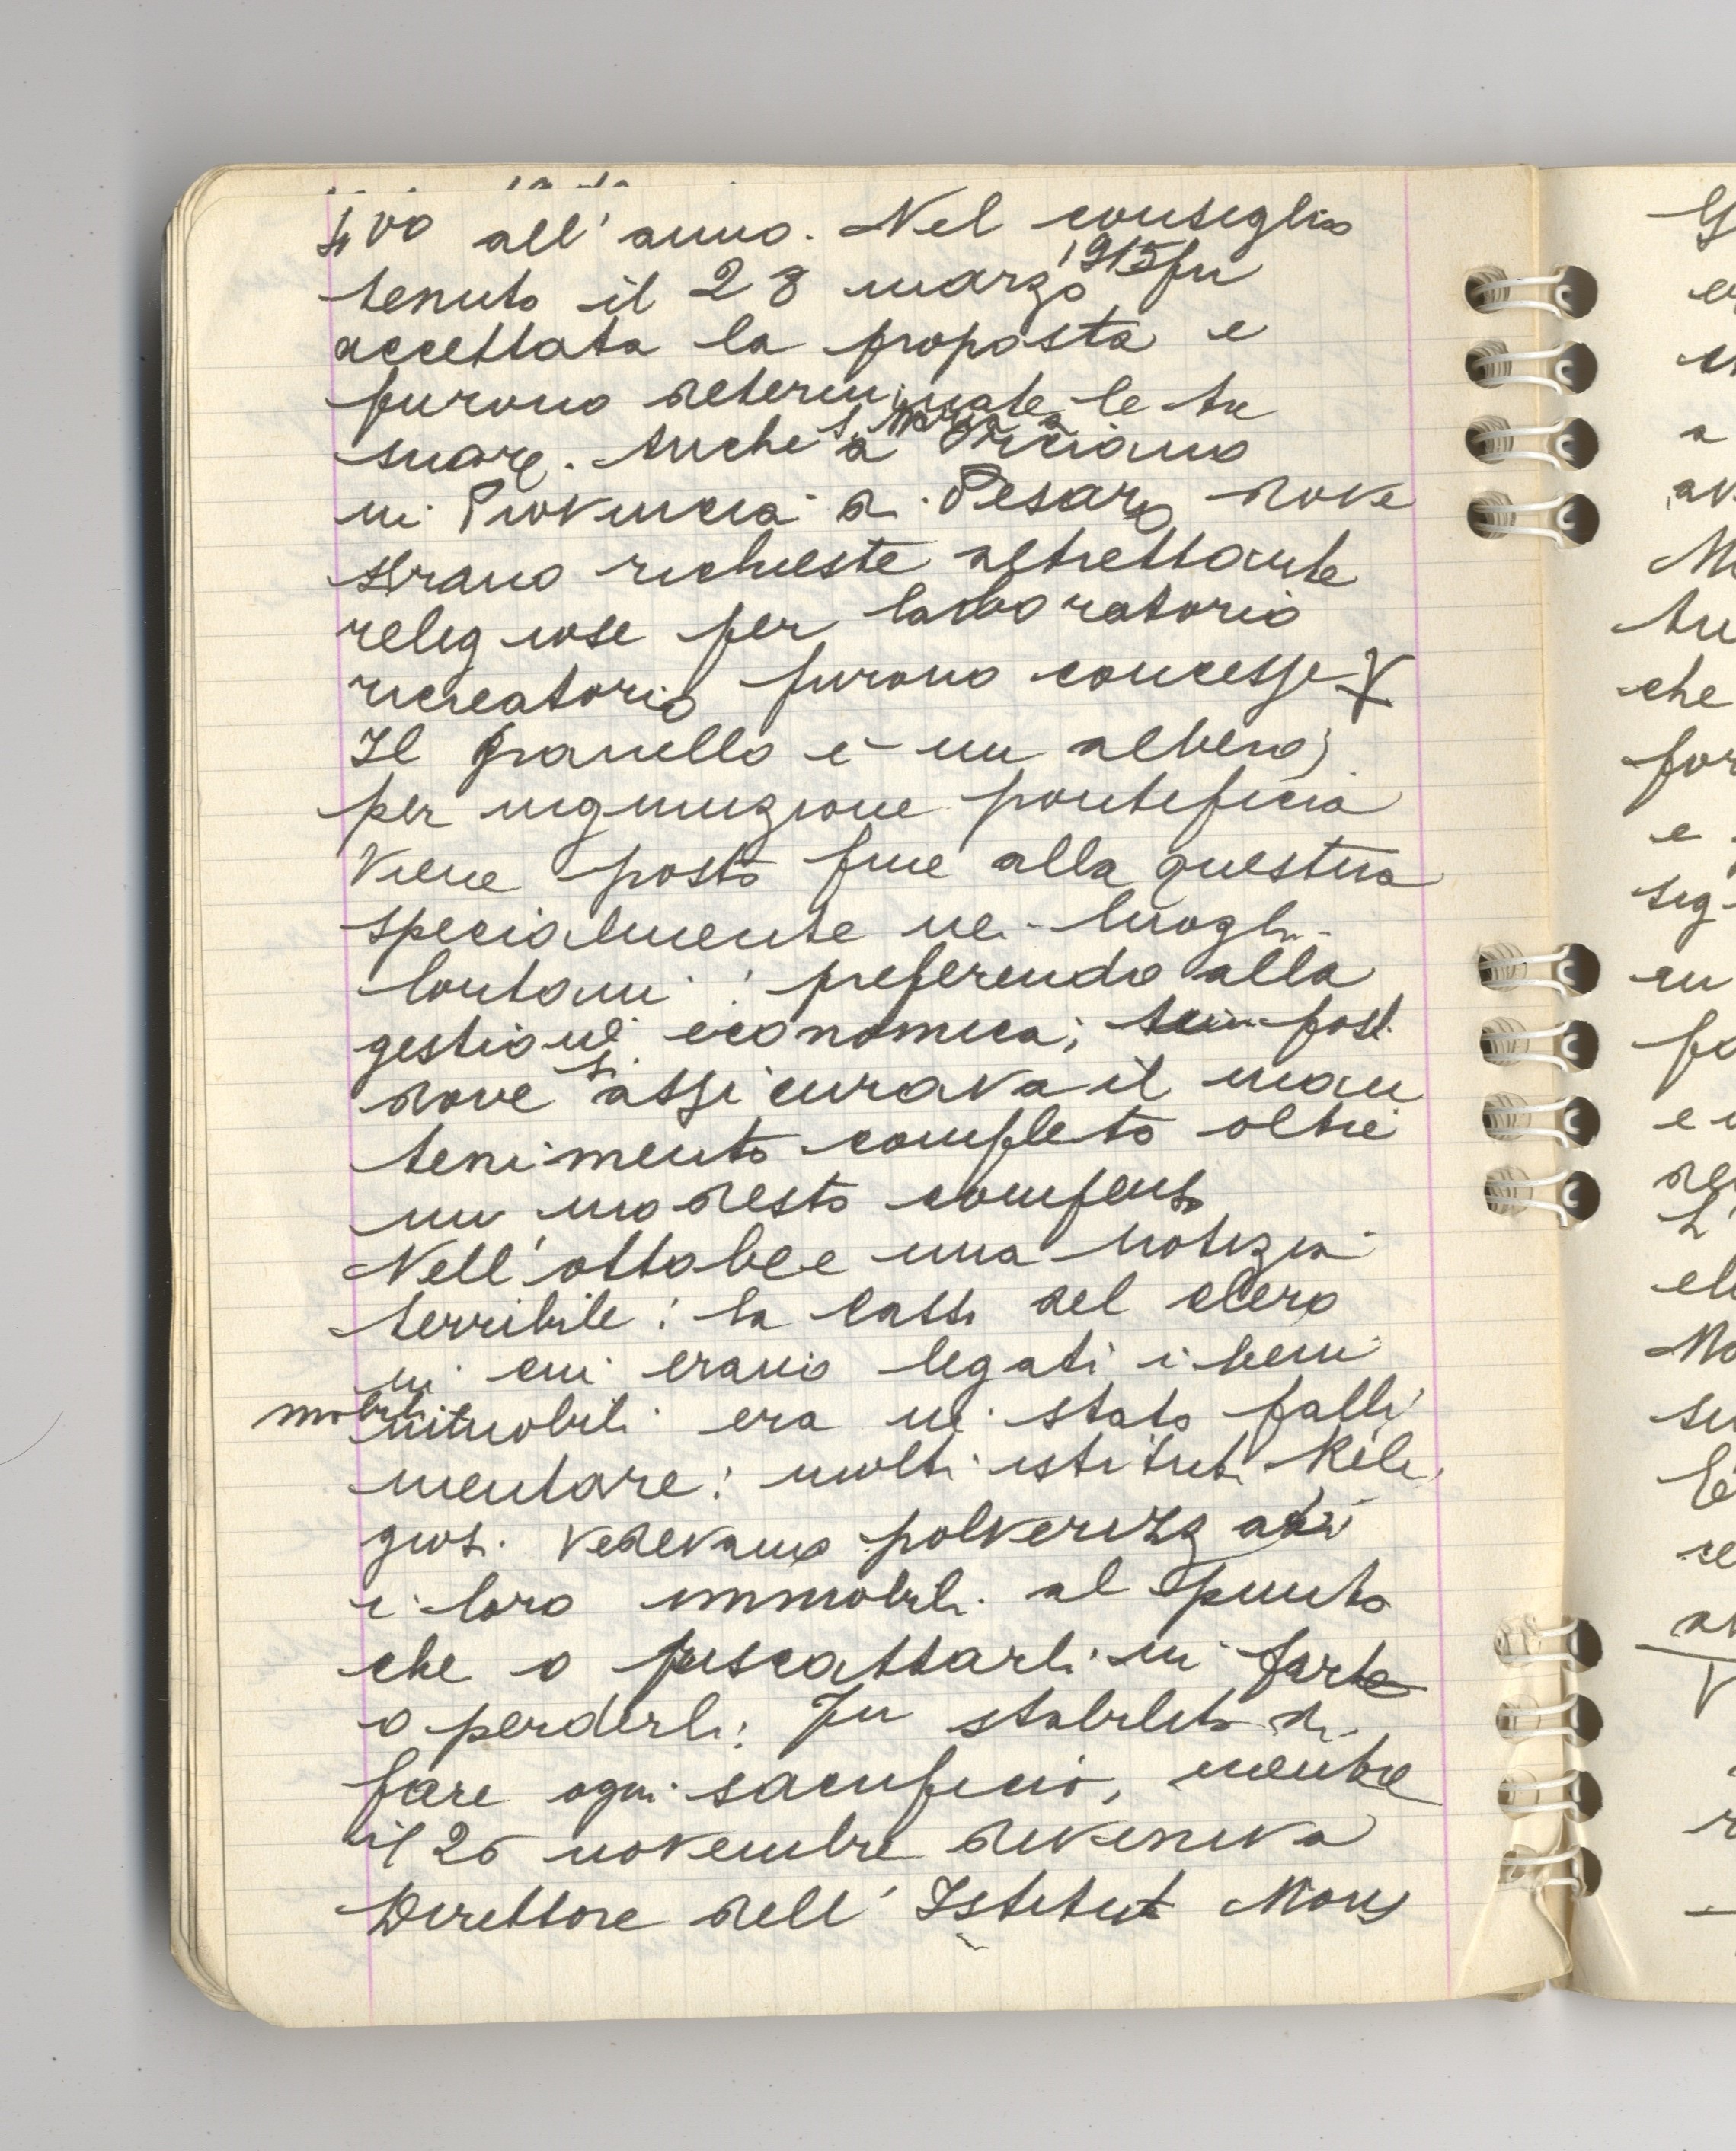 400 all'anno. Nel consiglio
tenuto il 28 marzo 1915 fu
accettata la proposta e
furono determinate le tre
suore. Anche S. Maria a
a Orciano
in Provincia di Pesaro dove
erano richieste altrettante
religiose per laboratorio
ricreatorio furono concesse
Il granello è un albero;
per ingiunzione pontificia
viene posto fine alla questua
specialmente nei luoghi
lontani: preferendo alla
gestione economica; posti
dove si assicurava il man
tenimento completo oltre
un modesto compenso
Nell'ottobre una notizia
terribile: la cassa del clero
in cui erano legati i beni
mobili
immobili era in stato falli
mentare: molti istituti Reli
giosi vedevano polverizzati
i loro immobili al punto
che o riscattarli in parte
o perderli: fu stabilito di
fare ogni sacrificio, mentre
il 26 novembre diveniva
Direttore dell'Istituto Mons
che
for
e